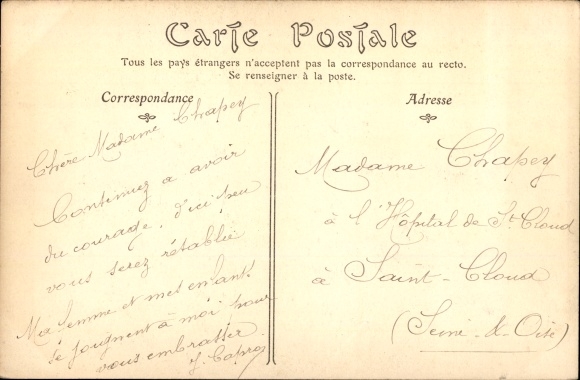 Carte Postale
Tous les pays étrangers n'acceptent pas la correspondance au recto.
Se renseigner à la poste.
Correspondance
Chère Madame Chapey
Continuez a avoir
du courage, d'ici peu
vous serez rétablie
Ma femme et mes enfants
se joignent à moi pour
vous embrasser.
Adresse
Madame Chapey
à l'Hôpital de St Cloud
à Saint-Cloud
(Seine-&-Oise)